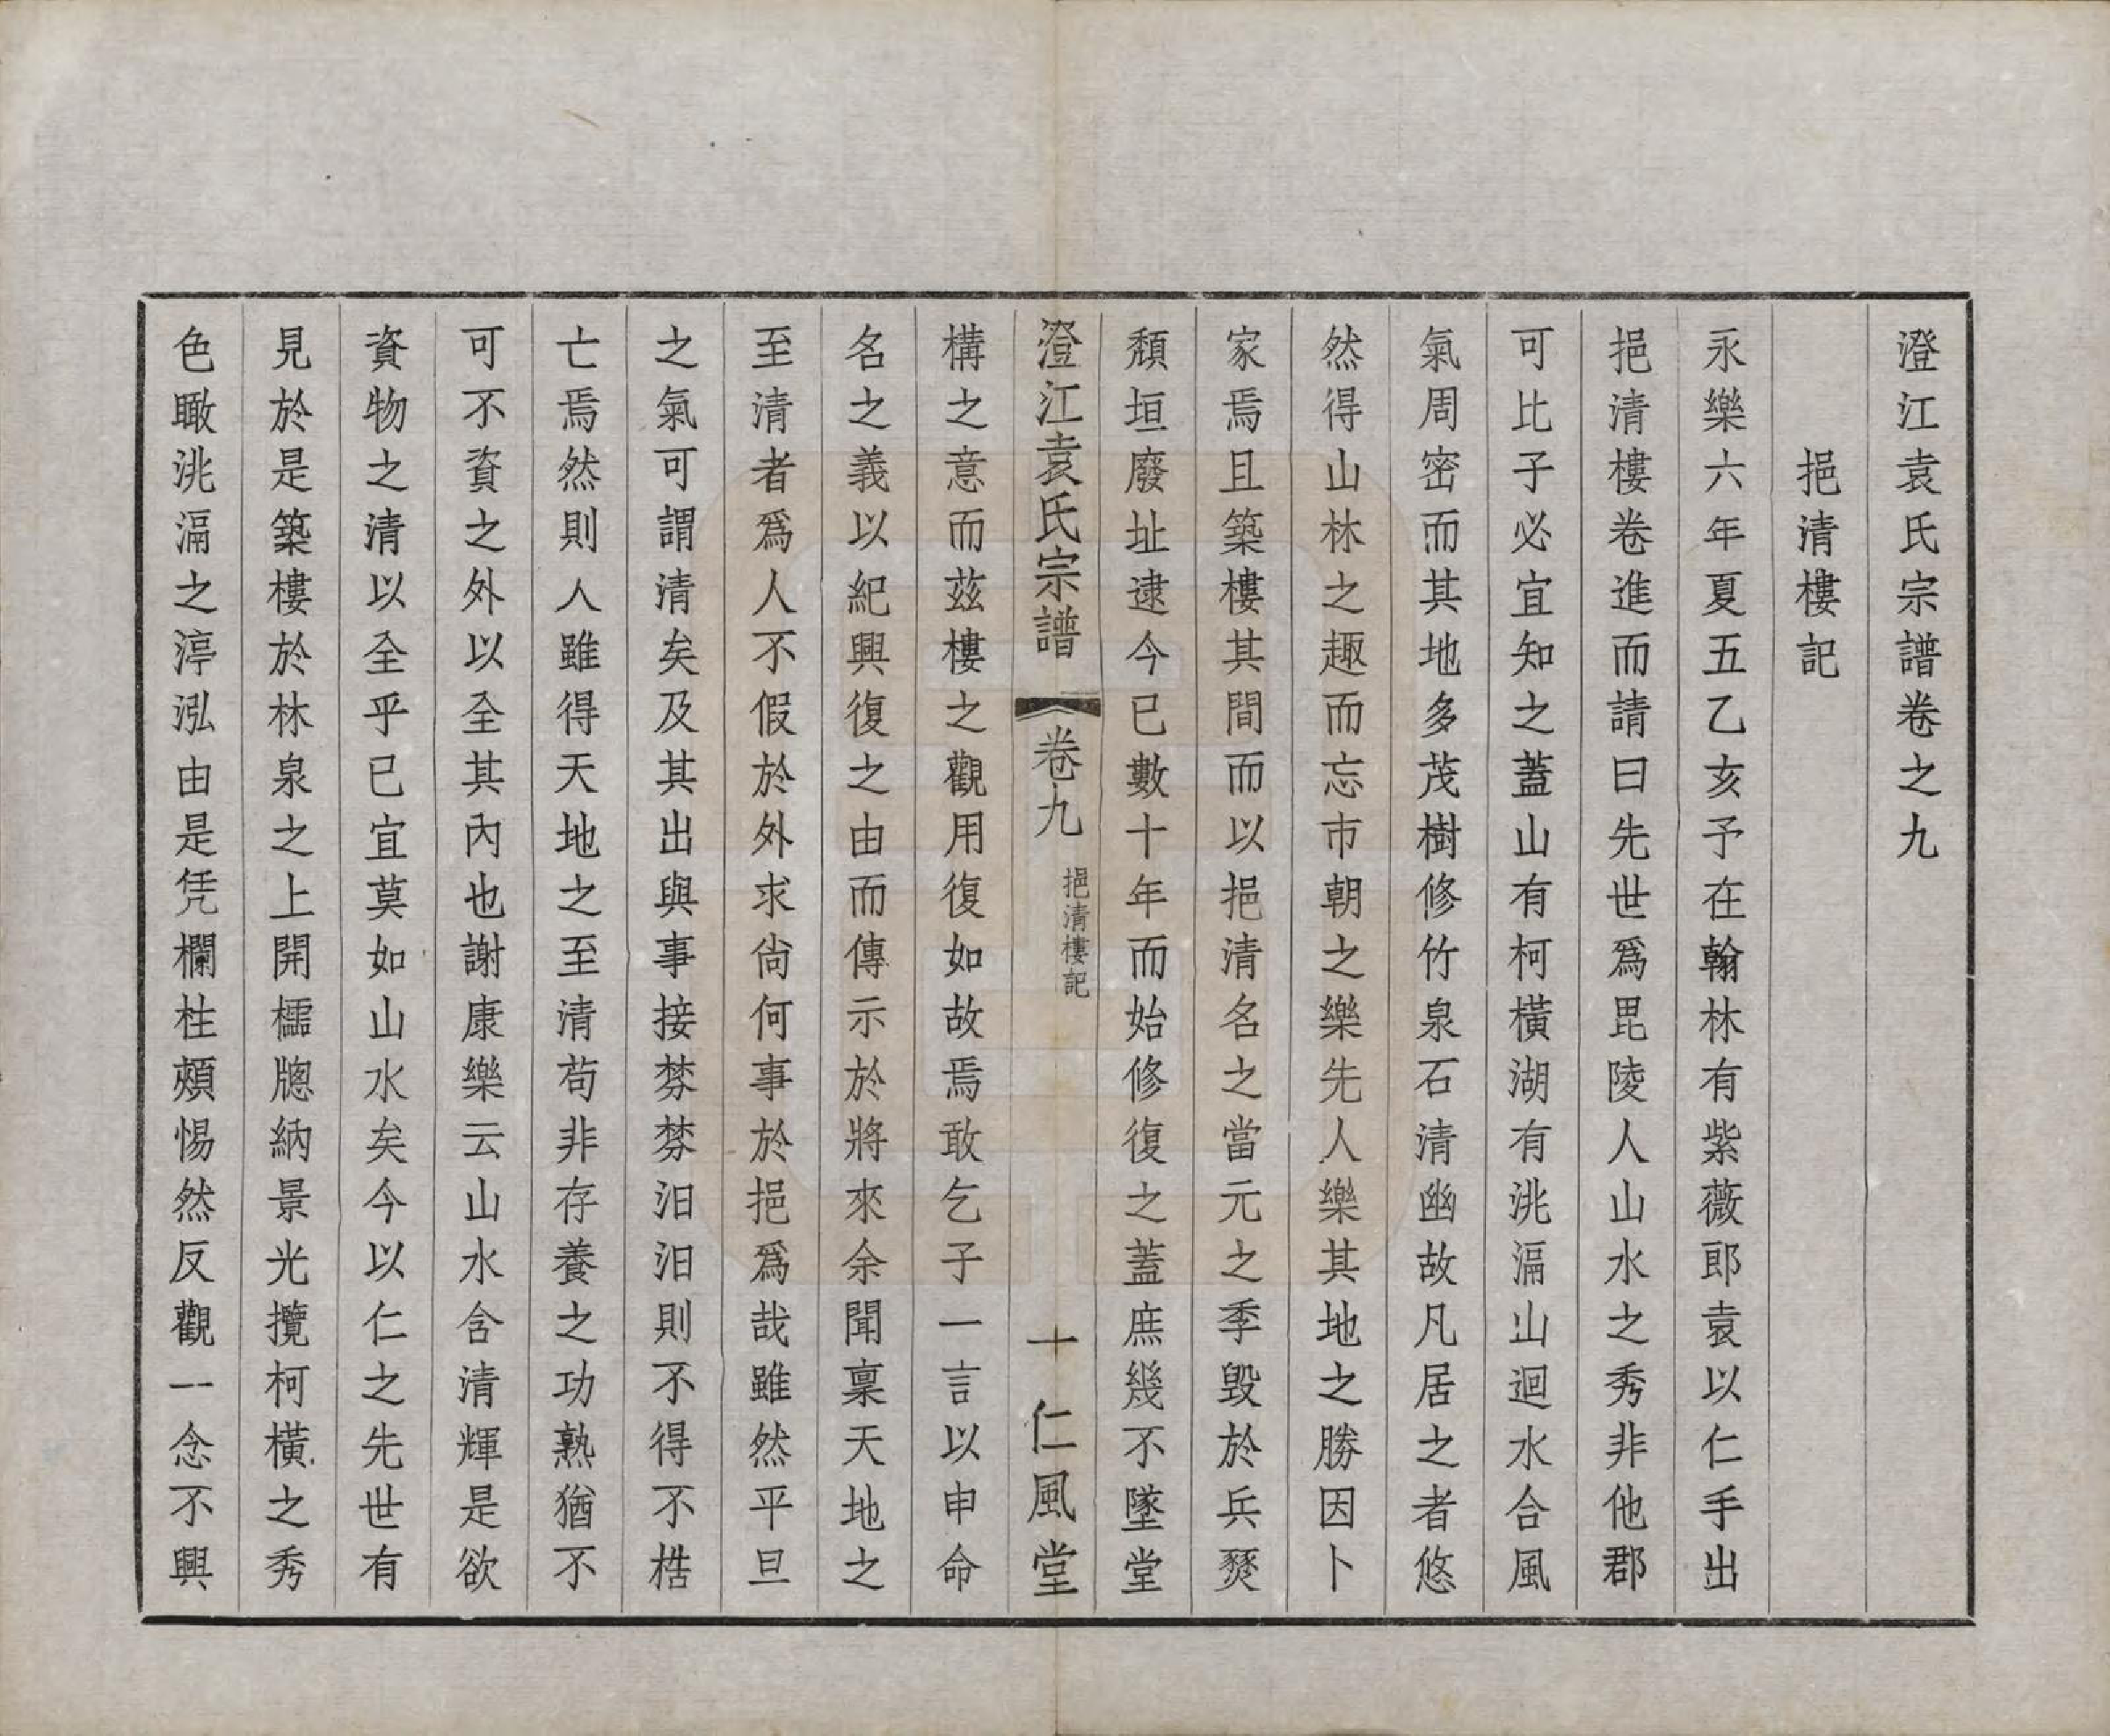 澄江袁氏宗譜卷之九
挹清樓記
永樂六年夏五乙亥予在翰林有紫薇郎袁以仁手出
挹清樓卷進而請曰先世爲毘陵人山水之秀非他郡
可比子必宜知之蓋山有柯橫湖有洮滆山迴水合風
氣周密而其地多茂樹修竹泉石清幽故凡居之者悠
然得山林之趣而忘市朝之樂先人樂其地之勝因卜
家焉且築樓其間而以挹清名之當元之季毀於兵燹
頹垣廢址逮今已數十年而始修復之蓋庶幾不墜堂
澄江袁氏宗譜 卷九 挹清樓記 十 仁風堂
構之意而茲樓之觀用復如故焉敢乞子一言以申命
名之義以紀興復之由而傳示於將來余聞稟天地之
至清者爲人不假於外求尙何事於挹爲哉雖然平旦
之氣可謂清矣及其出與事接棼棼汩汩則不得不梏
亡焉然則人雖得天地之至清苟非存養之功熟猶不
可不資之外以全其內也謝康樂云山水含清輝是欲
資物之清以全乎已宜莫如山水矣今以仁之先世有
見於是築樓於林泉之上開櫺牎納景光攬柯橫之秀
色瞰洮滆之渟泓由是凭欄拄頰惕然反觀一念不興